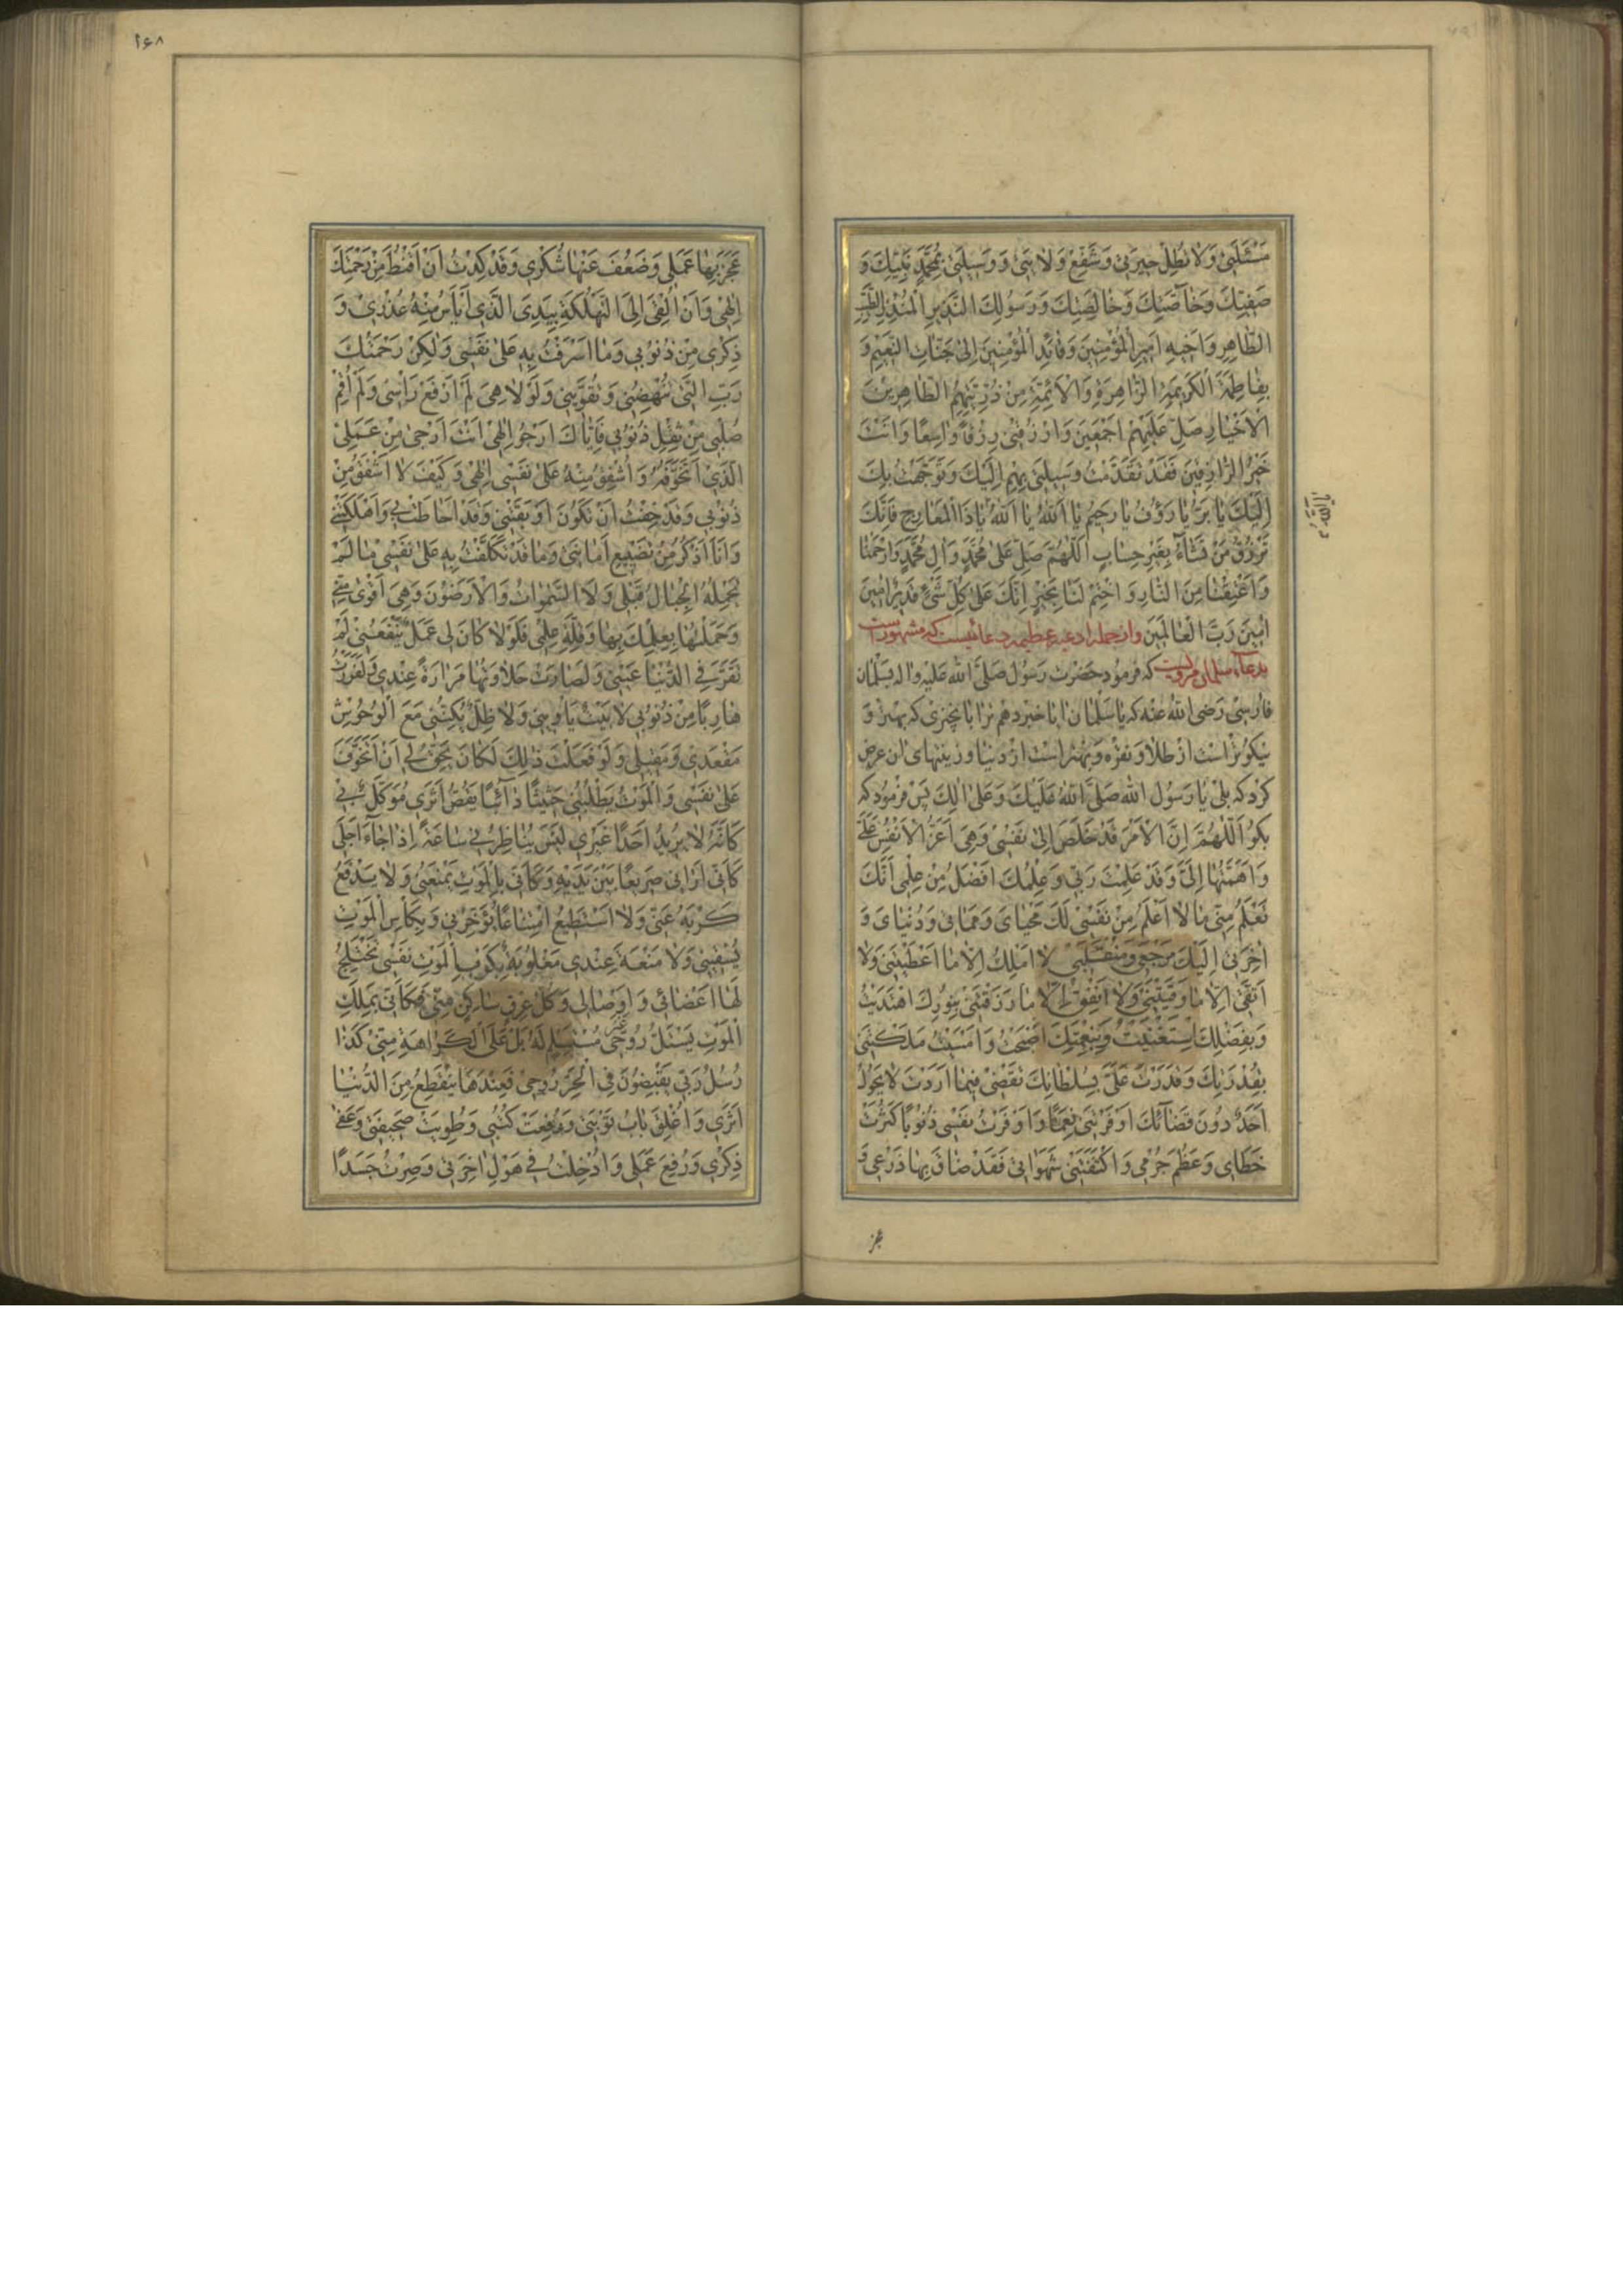 مَسْئَلَتی وَلا تُطِلْ حَیرَتی وَشَفِّعْ وَلایَتی وَ وَسیلَتی بِمُحَمَّدٍ نَبِیِّكَ وَ
صَفِیِّكَ وَخاصَّتِكَ وَخالِصَتِكَ وَرَسُولِكَ النَّذیرِ الْمُنْذِرِ الطَّیِّبِ
الطّاهِرِ وَاَخیهِ اَمیرِ الْمُؤْمِنینَ وَقائِدِ الْمُؤْمِنینَ اِلی جَنّاتِ النَّعیمِ وَ
بِفاطِمَةَ الْكَریمَةِ الزّاهِرَةِ وَالْاَئِمَّةِ مِنْ ذُرِّیَّتِهِمُ الطّاهِرینَ
الْاَخْیارِ صَلِّ عَلَیْهِمْ اَجْمَعینَ وَارْزُقْنی رِزْقًا واسِعًا وَاَنْتَ
خَیْرُ الرّازِقینَ فَقَدْ تَقَدَّمَتْ وَسیلَتی بِهِمْ اِلَیْكَ وَتَوَجَّهْتُ بِكَ
اِلَیْكَ یا بَرُّ یا رَؤُفُ یا رَحیمُ یا اَللّٰهُ یا اَللّٰهُ یا ذَا الْمَعارِجِ فَاِنَّكَ
تَرْزُقُ مَنْ تَشاءُ بِغَیْرِ حِسابٍ اَللّٰهُمَّ صَلِّ عَلی مُحَمَّدٍ وَالِ مُحَمَّدٍ وَارْحَمْنا
وَاَعْتِقْنا مِنَ النّارِ وَاخْتِمْ لَنا بِخَیْرٍ اِنَّكَ عَلی كُلِّ شَیْءٍ قَدیرٌ امینَ
امینَ رَبَّ الْعالَمینَ وازجمله ادعیه عظیمه دعائیست كه مشهورست
بدعاء سلمان مرویست كه فرمود حضرت رسول صلی الله علیه واله بسلمان
فارسی رضی الله عنه كه یا سلمان ایا خبر دهم ترا بچیزی كه بهتر و
نیكوتر است از طلا و نقره و بهتر است از دنیا و زینتهای ان عرض
كرد كه بلی یا رسول الله صلی الله علیك وعلی الك پس فرمود كه
بكو اَللّٰهُمَّ اِنَّ الْاَمْرَ قَدْ خَلَصَ اِلی نَفْسی وَهِیَ اَعَزُّ الْاَنْفُسِ عَلَیَّ
وَاَهَمُّها اِلَیَّ وَقَدْ عَلِمْتَ رَبّی وَعِلْمُكَ اَفْضَلُ مِنْ عِلْمی اَنَّكَ
تَعْلَمُ مِنّی ما لا اَعْلَمُ مِنْ نَفْسی لَكَ مَحْیایَ وَمَماتی وَدُنْیایَ وَ
اخِرَتی اِلَیْكَ مَرْجَعی وَمُنْقَلَبی لا اَمْلِكُ اِلّا ما اَعْطَیْتَنی وَلا
اَتَّقی اِلّا ما وَقَیْتَنی وَلا اُنْفِقُ اِلّا ما رَزَقْتَنی بِنُورِكَ اهْتَدَیْتُ
وَبِفَضْلِكَ اسْتَغْنَیْتُ وَبِنِعْمَتِكَ اَصْبَحْتُ وَاَمْسَیْتُ مَلَكْتَنی
بِقُدْرَتِكَ وَقَدَرْتَ عَلَیَّ بِسُلْطانِكَ تَقْضی فیما اَرَدْتَ لا یَحُولُ
اَحَدٌ دُونَ قَضائِكَ اَوْقَرْتَنی نِعَمًا وَاَوْقَرْتُ نَفْسی ذُنُوبًا كَثُرَتْ
خَطایایَ وَعَظُمَ جُرْمی وَاكْتَنَفَتْنی شَهَواتی فَقَدْ ضاقَ بِها ذَرْعی وَ
یا الله
عجز
۲۶۸
عَجَزَ بِها عَمَلی وَضَعُفَ عَنْها شُكْری وَقَدْ كِدْتُ اَنْ اَقْنَطَ مِنْ رَحْمَتِكَ
اِلهی وَاَنْ اُلْقی اِلَی التَّهْلُكَةِ بِیَدِیَ الَّذی اَیْاَسُ مِنْهُ عُذْری وَ
ذِكْری مِنْ ذُنُوبی وَما اَسْرَفْتُ بِهِ عَلی نَفْسی وَلكِنْ رَحْمَتُكَ
رَبِّ الَّتی تُنْهِضُنی وَتُقَوّینی وَلَوْلا هِیَ لَمْ اَرْفَعْ رَاْسی وَلَمْ اُقِمْ
صُلْبی مِنْ ثِقْلِ ذُنُوبی فَاِیّاكَ اَرْجُو اِلهی اَنْتَ اَرْجی مِنْ عَمَلِیَ
الَّذی اَتَخَوَّفُهُ وَاُشْفِقُ مِنْهُ عَلی نَفْسی اِلهی وَكَیْفَ لا اُشْفِقُ مِنْ
ذُنُوبی وَقَدْ خِفْتُ اَنْ تَكُونَ اَوْبَقَتْنی وَقَدْ اَحاطَتْ بی وَاَهْلَكَتْنی
وَاَنَا اَذْكُرُ مِنْ تَضْییعِ اَمانَتی وَما قَدْ تَكَلَّفْتُ بِهِ عَلی نَفْسی ما لَمْ
تَحْمِلْهُ الْجِبالُ قَبْلی وَلَا السَّمواتُ وَالْاَرَضُونَ وَهِیَ اَقْوی مِنّی
وَحَمَلْتُها بِعِلْمِكَ بِها وَقِلَّةِ عِلْمی فَلَوْلا كانَ لی عَمَلٌ یَنْفَعُنی لَمْ
تَقَرَّ فِی الدُّنْیا عَیْنی وَلَصارَتْ حَلاوَتُها مَرارَةً عِنْدی وَلَفَرَرْتُ
هارِبًا مِنْ ذُنُوبی لا بَیْتٌ یَاْوینی وَلا ظِلٌّ یُكِنُّنی مَعَ الْوُحُوشِ
مَقْعَدی وَمَقیلی وَلَوْ فَعَلْتُ ذلِكَ لَكانَ یَحِقُّ لی اَنْ اَتَخَوَّفَ
عَلی نَفْسی وَالْمَوْتُ یَطْلُبُنی حَثیثًا دائِبًا یَقُصُّ اَثَری مُوَكَّلٌ بی
كَاَنَّهُ لا یُریدُ اَحَدًا غَیْری لَیْسَ یُناظِرُنی ساعَةً اِذا جاءَ اَجَلی
كَاَنّی اَرانی صَریعًا بَیْنَ یَدَیْهِ وَكَاَنّی بِالْمَوْتِ یَمْنَعُنی وَلا یَدْفَعُ
كَرْبَهُ عَنّی وَلا اَسْتَطیعُ امْتِناعًا یُؤَخِّرُنی وَبِكَاْسِ الْمَوْتِ
یَسْقینی وَلا مَنَعَةَ عِنْدی مَغْلُوبَةٌ بِكَرْبِ الْمَوْتِ نَفْسی تَخْتَلِجُ
لَها اَعْضائی وَاَوْصالی وَكُلُّ عِرْقٍ ساكِنٍ مِنّی فَكَاَنّی بِمَلَكِ
الْمَوْتِ یَسْتَلُّ رُوحی غیر مُسْتَسْلِمٍ لَهُ بَلْ عَلَی الْكَراهَةِ مِنّی كَذا
رُسُلُ رَبّی یَقْبِضُونَ فِی الْحَرِّ رُوحی فَعِنْدَها یَنْقَطِعُ مِنَ الدُّنْیا
اَثَری وَاُغْلِقَ بابُ تَوْبَتی وَرُفِعَتْ كُتُبی وَطُوِیَتْ صَحیفَتی وَعَفی
ذِكْری وَرُفِعَ عَمَلی وَاُدْخِلْتُ فی هَوْلِ اخِرَتی وَصِرْتُ جَسَدًا